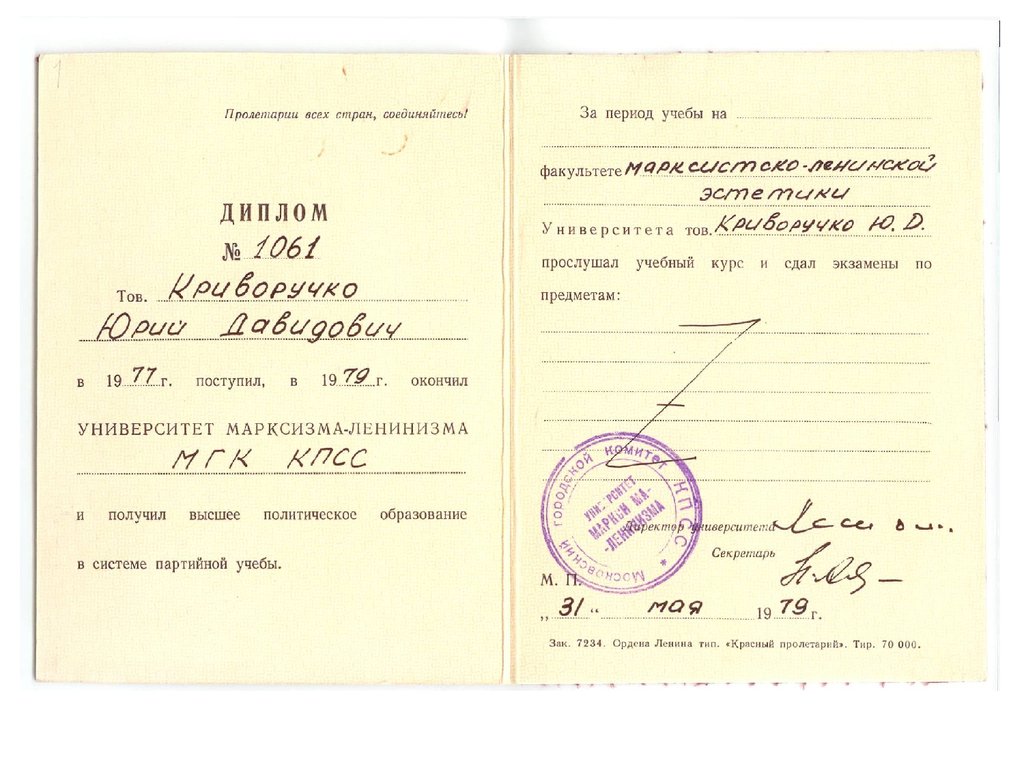 Пролетарии всех стран, соединяйтесь!
ДИПЛОМ
№ 1061
Тов. Криворучко
Юрий Давидович
в 1977 г. поступил, в 1979 г. окончил
УНИВЕРСИТЕТ МАРКСИЗМА-ЛЕНИНИЗМА
МГК КПСС
и получил высшее политическое образование
в системе партийной учебы.
За период учебы на
факультете марксистско-ленинской
эстетики
Университета тов. Криворучко Ю. Д.
прослушал учебный курс и сдал экзамены по
предметам:
Московский городской комитет КПСС
Директор университета
Секретарь
М. П.
„31“ мая 1979 г.
Зак. 7234. Ордена Ленина тип. «Красный пролетарий». Тир. 70 000.